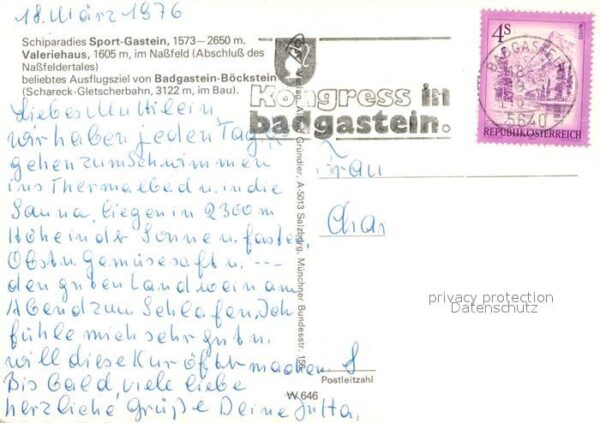 18. März 1976
Schiparadies Sport-Gastein, 1573—2650 m.
Valeriehaus, 1605 m, im Naßfeld (Abschluß des
Naßfeldertales)
beliebtes Ausflugsziel von Badgastein-Böckstein
(Schareck-Gletscherbahn, 3122 m, im Bau).
Liebes Mutilein
wir haben jeden Tag
gehen zum Schwimmen
ins Thermalbad u. in die
Sauna, liegen in 2300 m
Höhe in der Sonne u. fasten,
Obst u. Gemüsesaft u. ---
den guten Landwein am
Abend zum Schlafen, Ich
fühle mich sehr gut u.
will diese Kur öfter machen.
Bis bald, viele liebe
herzliche Grüße Deine Jutta,
Kongress in
badgastein.
4S
REPUBLIK ÖSTERREICH
BADGASTEIN
5640
Gründler, A-5013 Salzburg, Münchner Bundesstr. 156
Frau
privacy protection
Datenschutz
Postleitzahl
W 646